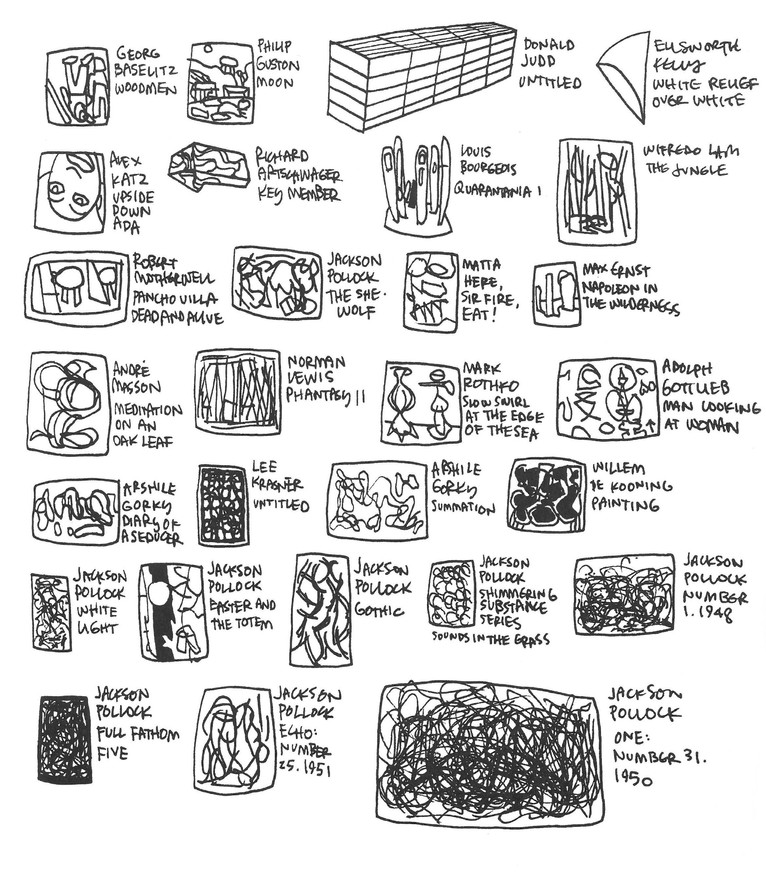 GEORG
BASELITZ
WOODMEN
PHILIP
GUSTON
MOON
DONALD
JUDD
UNTITLED
ELLSWORTH
KELLY
WHITE RELIEF
OVER WHITE
ALEX
KATZ
UPSIDE
DOWN
ADA
RICHARD
ARTSCHWAGER
KEY MEMBER
LOUIS
BOURGEOIS
QUARANTANIA I
WIFREDO LAM
THE JUNGLE
ROBERT
MOTHERWELL
PANCHO VILLA
DEAD AND ALIVE
JACKSON
POLLOCK
THE SHE-
WOLF
MATTA
HERE,
SIR FIRE,
EAT!
MAX ERNST
NAPOLEON IN
THE WILDERNESS
ANDRÉ
MASSON
MEDITATION
ON AN
OAK LEAF
NORMAN
LEWIS
PHANTASY II
MARK
ROTHKO
SLOW SWIRL
AT THE EDGE
OF THE SEA
ADOLPH
GOTTLIEB
MAN LOOKING
AT WOMAN
ARSHILE
GORKY
DIARY OF
A SEDUCER
LEE
KRASNER
UNTITLED
ARSHILE
GORKY
SUMMATION
WILLEM
DE KOONING
PAINTING
JACKSON
POLLOCK
WHITE
LIGHT
JACKSON
POLLOCK
EASTER AND
THE TOTEM
JACKSON
POLLOCK
GOTHIC
JACKSON
POLLOCK
SHIMMERING
SUBSTANCE
SERIES
SOUNDS IN THE GRASS
JACKSON
POLLOCK
NUMBER
1. 1948
JACKSON
POLLOCK
FULL FATHOM
FIVE
JACKSON
POLLOCK
ECHO:
NUMBER
25. 1951
JACKSON
POLLOCK
ONE:
NUMBER 31.
1950